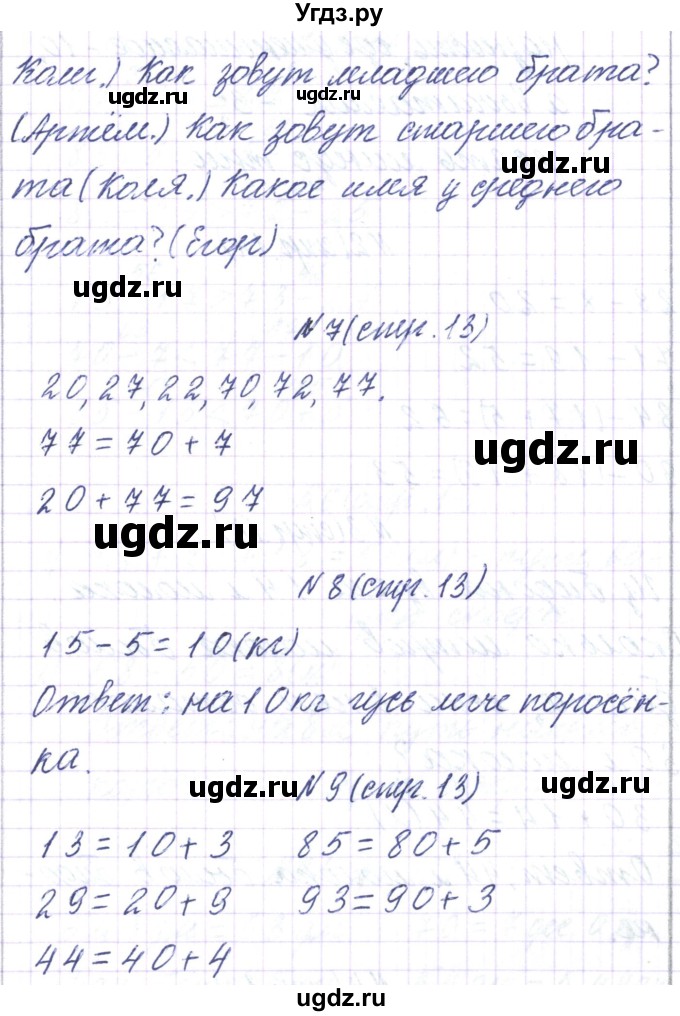 Угдз.ру
Коли.) Как зовут младшего брата?
ugdz.ru ugdz.ru
(Артём.) Как зовут старшего бра-
та (Коля.) Какое имя у среднего
брата? (Егор)
ugdz.ru
№7 (стр. 13)
20, 27, 22, 70, 72, 77.
77 = 70 + 7
ugdz.ru
20 + 77 = 97
ugdz.ru
№8 (стр. 13)
15 - 5 = 10 (кг)
Ответ: на 10 кг гусь легче поросён-
ка.
ugdz.ru ugdz.ru
№9 (стр. 13)
13 = 10 + 3 85 = 80 + 5
29 = 20 + 9 93 = 90 + 3
44 = 40 + 4
ugdz.ru